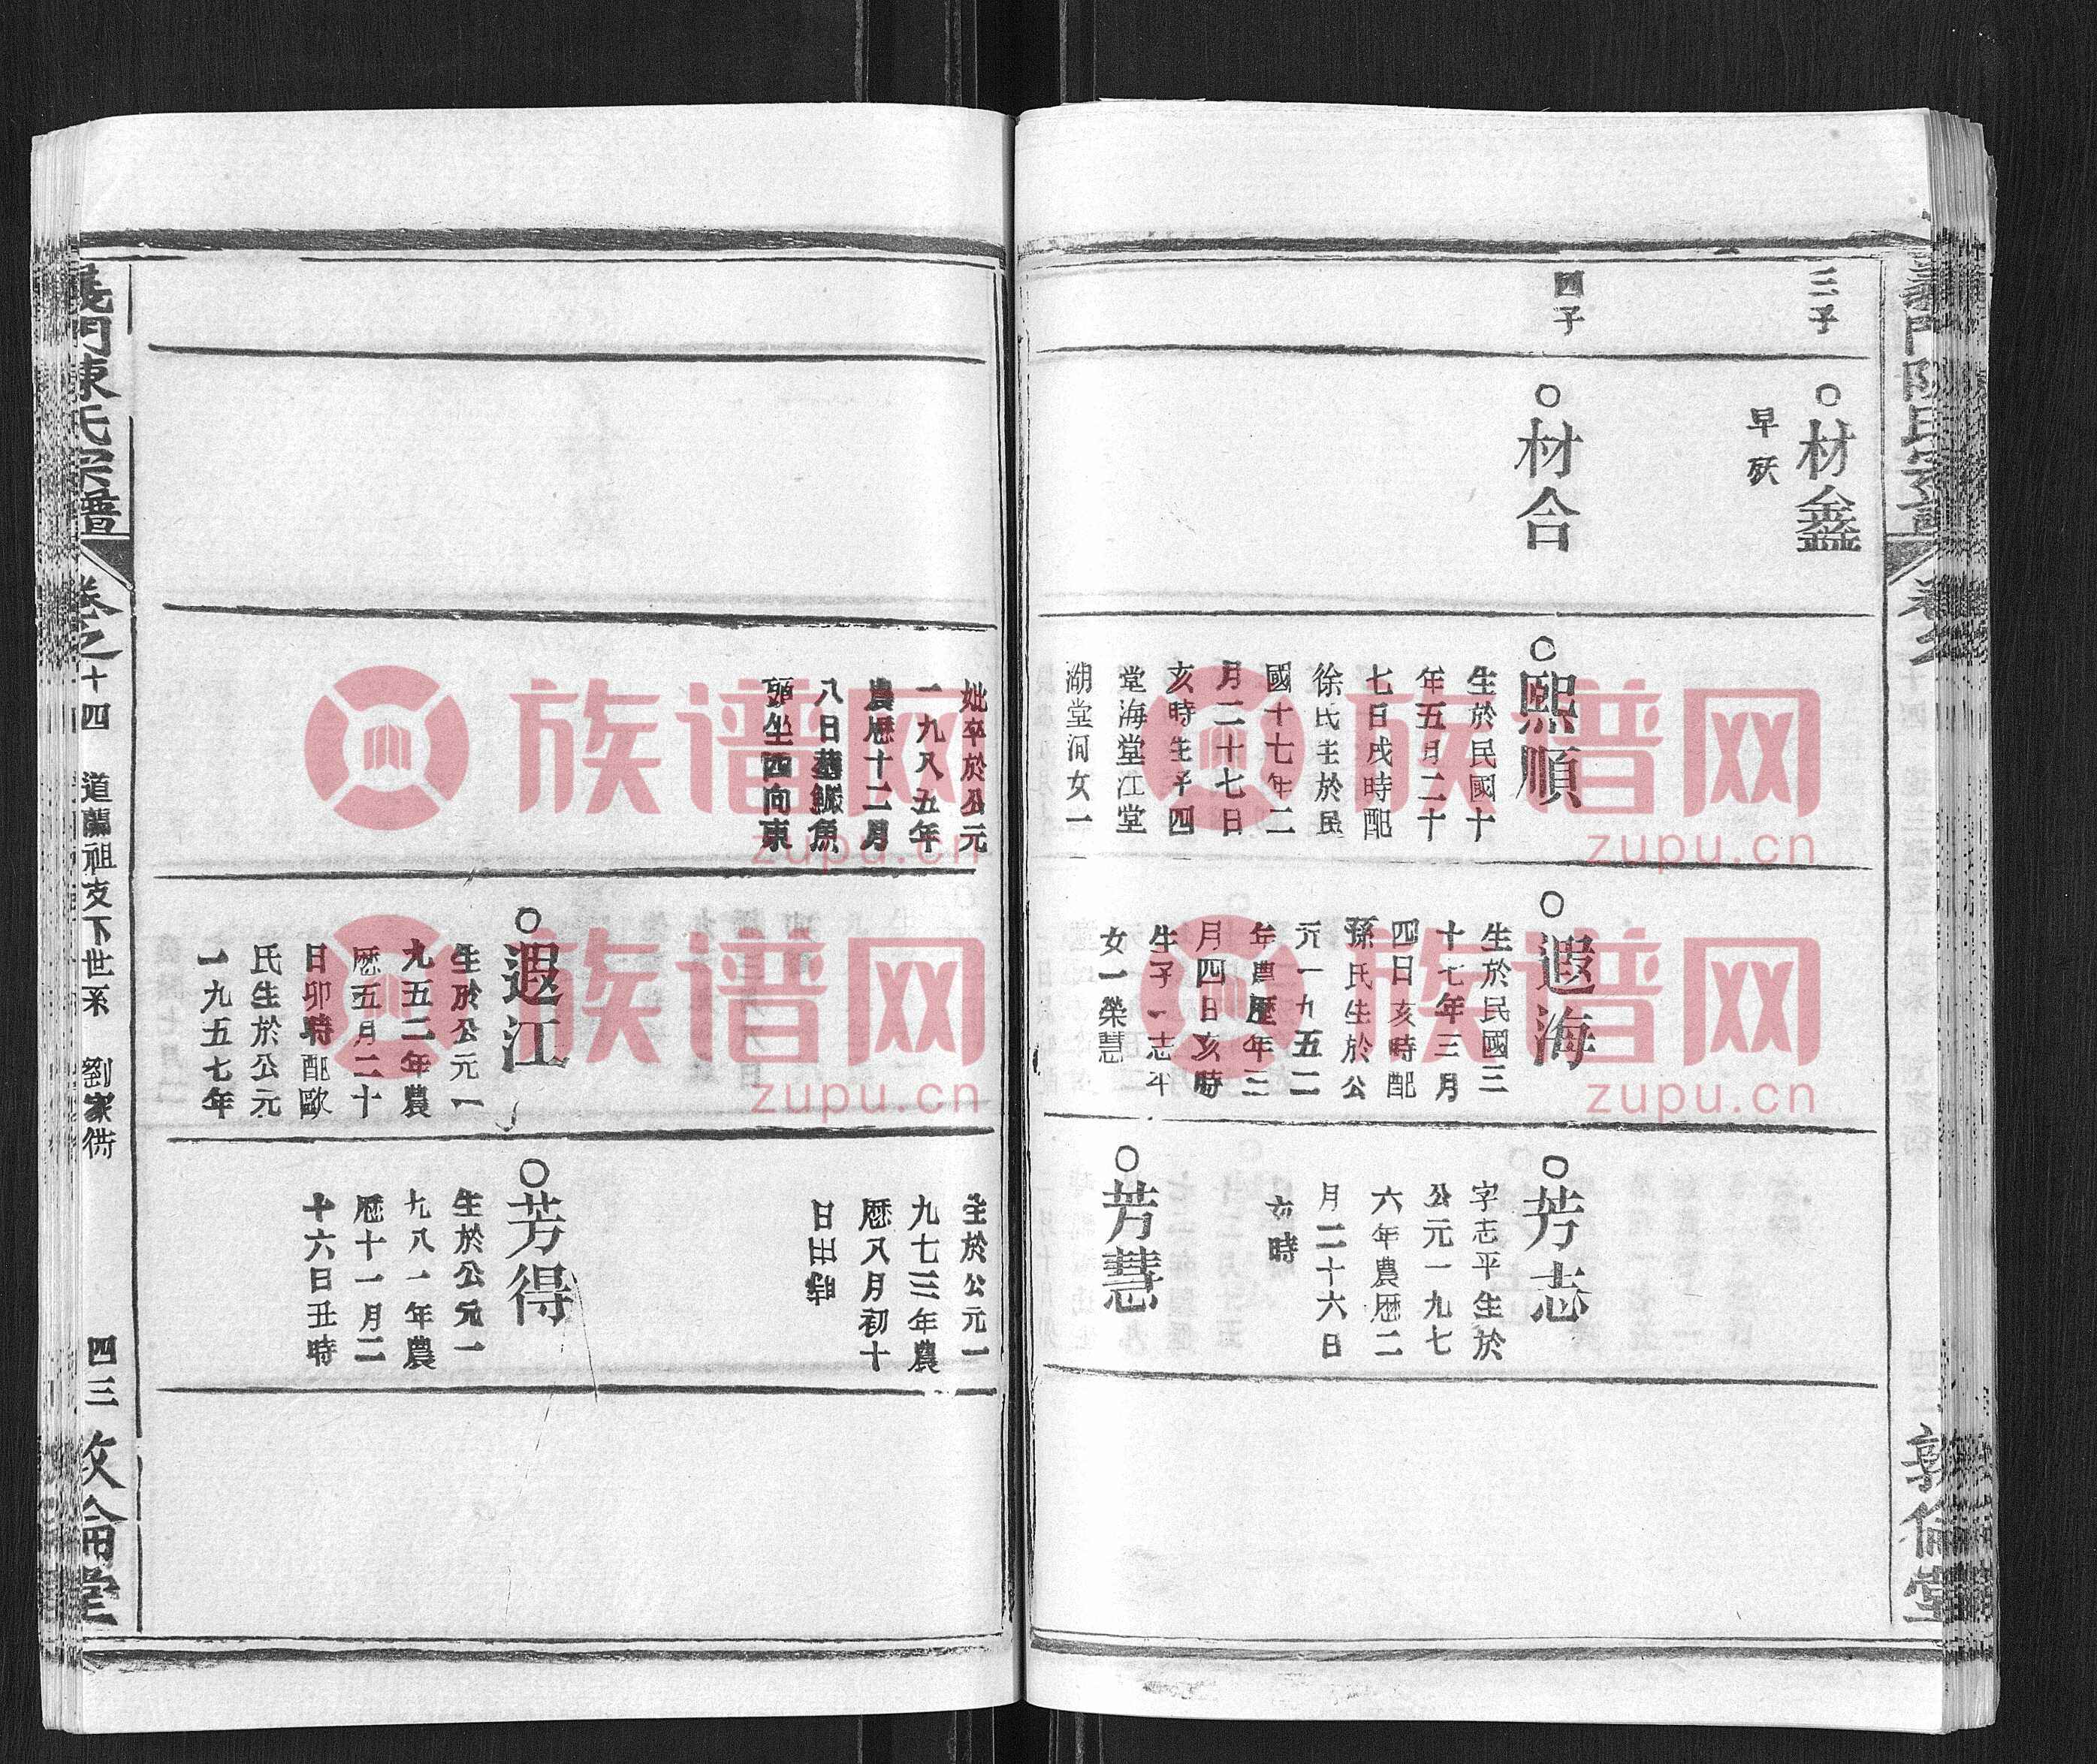 三子
四子
材鑫
早殀
材合
熙順
生於民國十
年五月二十
七日戌時配
徐氏生於民
國十七年二
月二十七日
亥時生子四
堂海堂江堂
湖堂河女一
遐海
生於民國三
十七年三月
四日亥時配
孫氏生於公
元一九五二
年農歷年三
月四日亥時
生子一志平
女一榮慧
芳志
字志平生於
公元一九七
六年農歷二
月二十六日
時
芳慧
敦倫堂
妣卒於公元
一九八五年
農歷十二月
八日葬鯿魚
頭坐西向東
遐江
生於公元一
九五二年農
歷五月二十
日卯時配歐
氏生於公元
一九五七年
生於公元一
九七三年農
歷八月初十
日
芳得
生於公元一
九八一年農
歷十一月二
十六日丑時
義門陳氏宗譜
卷之十四 道蘭祖支下世系 劉家衖
四三
敦倫堂
族谱网
zupu.cn
族谱网
zupu.cn
族谱网
zupu.cn
族谱网
zupu.cn